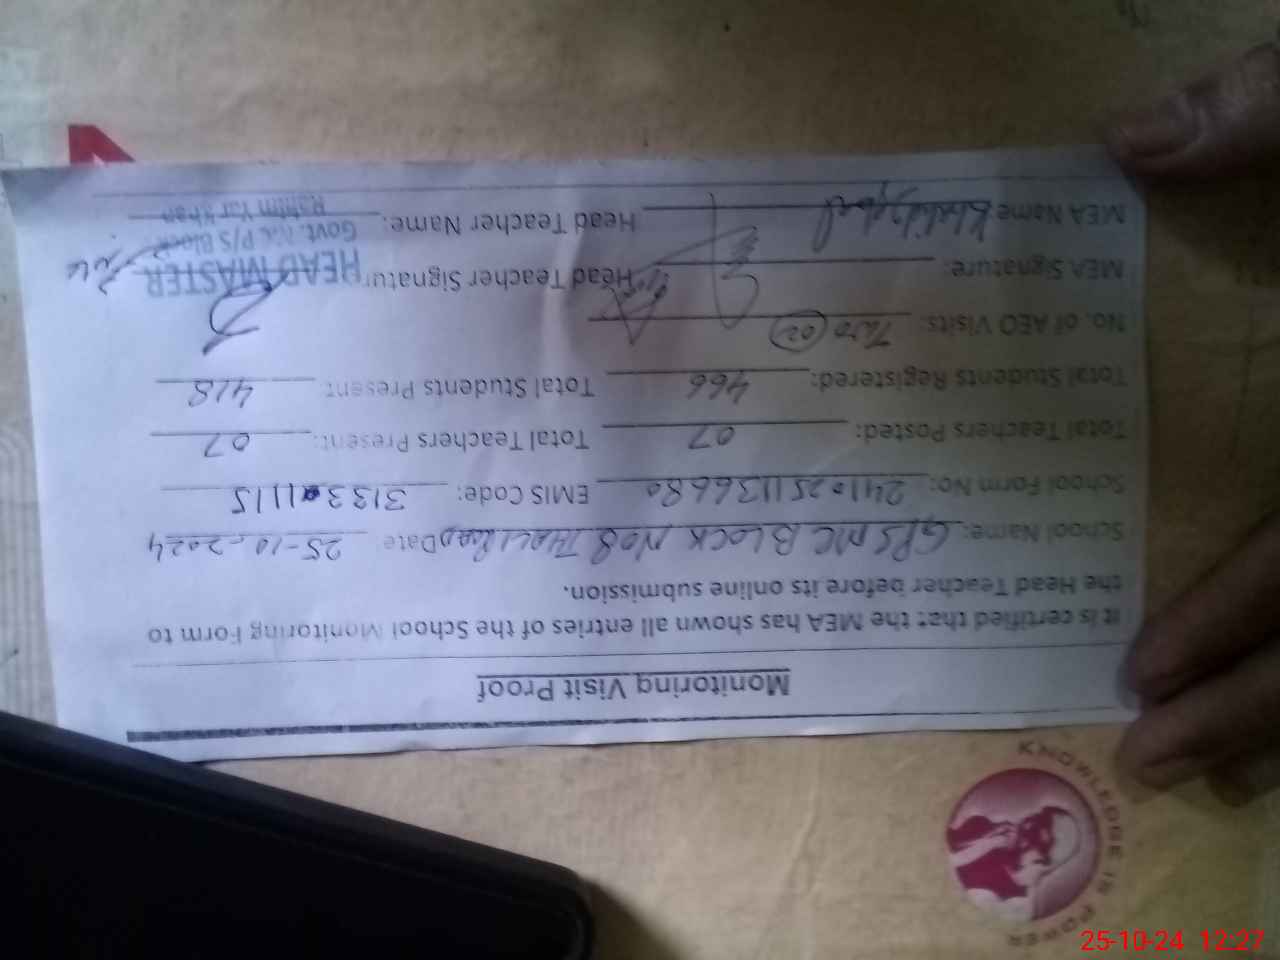 Monitoring Visit Proof
It is certified that the MEA has shown all entries of the School Monitoring Form to
the Head Teacher before its online submission.
School Name: GPS MC BLOCK NO8 THALI Road Date: 25-10-2024
School Form No: 2411025113668 EMIS Code: 313301115
Total Teachers Posted: 07 Total Teachers Present: 07
Total Students Registered: 466 Total Students Present: 418
No. of AEO Visits: Two (02)
MEA Signature: Head Teacher Signature
HEAD MASTER
MEA Name Khalid Iqbal Head Teacher Name:
Govt. M.C P/S Block
Rahim Yar Khan
KNOWLEDGE IS POWER
25-10-24 12:27